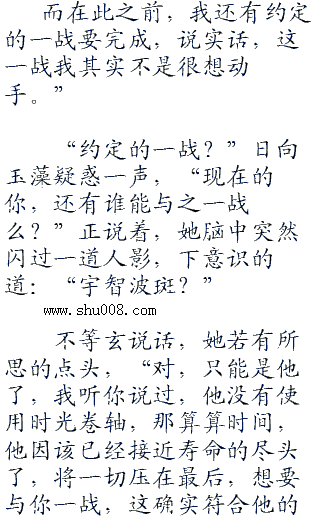 而在此之前，我还有约定
的一战要完成，说实话，这
一战我其实不是很想动
手。”
“约定的一战？”日向
玉藻疑惑一声，“现在的
你，还有谁能与之一战
么？”正说着，她脑中突然
闪过一道人影，下意识的
道：“宇智波斑？”
www.shu008.com
不等玄说话，她若有所
思的点头，“对，只能是他
了，我听你说过，他没有使
用时光卷轴，那算算时间，
他因该已经接近寿命的尽头
了，将一切压在最后，想要
与你一战，这确实符合他的